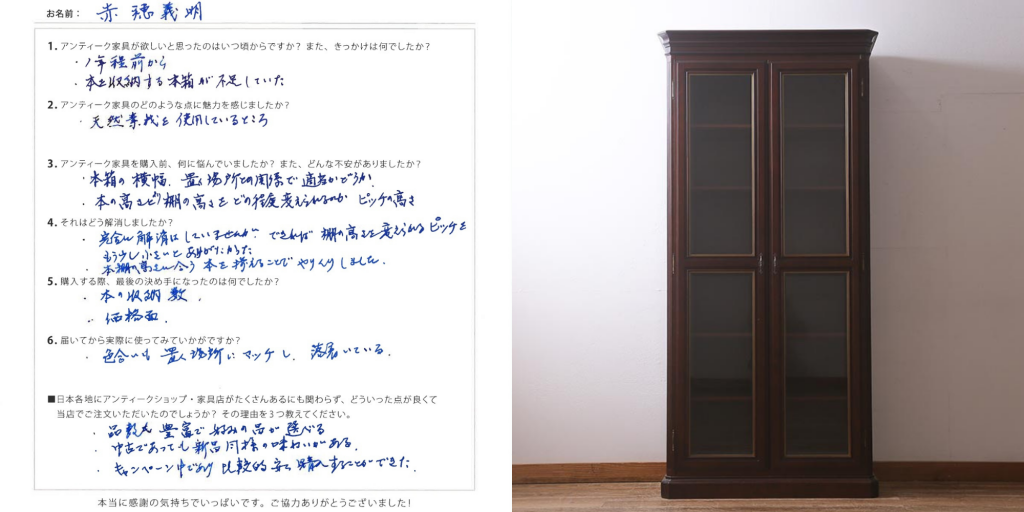 お名前： 赤穂義明
1. アンティーク家具が欲しいと思ったのはいつ頃からですか？ また、きっかけは何でしたか？
・1年程前から
・本を収納する本箱が不足していた
2. アンティーク家具のどのような点に魅力を感じましたか？
・天然素材を使用しているところ
3. アンティーク家具を購入前、何に悩んでいましたか？ また、どんな不安がありましたか？
・本箱の横幅、置く場所との関係で適当かどうか
・本の高さと棚の高さをどの程度変えられるのか ピッチの高さ
4. それはどう解消しましたか？
・完全に解消はしていませんが、できれば棚の高さを変えられるピッチを
もう少し小さいとありがたかった
・本棚の高さに合う本を揃えることでやりくりしました。
5. 購入する際、最後の決め手になったのは何でしたか？
・本の収納数、
・価格面、
6. 届いてから実際に使ってみていかがですか？
・色合いも置く場所にマッチし、落着いている。
■日本各地にアンティークショップ・家具店がたくさんあるにも関わらず、どういった点が良くて
当店でご注文いただいたのでしょうか？ その理由を３つ教えてください。
・品数も豊富で好みの品が選べる
・中古であっても新品同様の味わいがある。
・キャンペーン中であり比較的安く購入することができた。
本当に感謝の気持ちでいっぱいです。ご協力ありがとうございました！